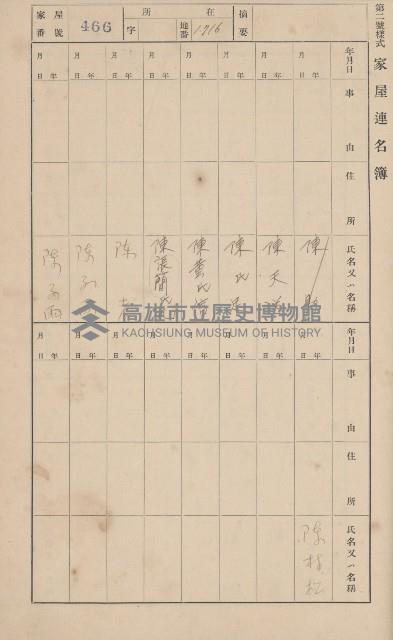 第二號樣式
家屋連名簿
家屋番號 466
所在
字
地番 1716
摘要
年月日
事由
住所
氏名又ハ名稱
年月日 年月日 年月日 年月日 年月日 年月日 年月日 年月日
陳
陳天
陳氏
陳黄氏
陳張簡氏
陳
陳
陳 雨
高雄市立歷史博物館
KAOHSIUNG MUSEUM OF HISTORY
年月日
事由
住所
氏名又ハ名稱
年月日 年月日 年月日 年月日 年月日 年月日 年月日 年月日
陳村松